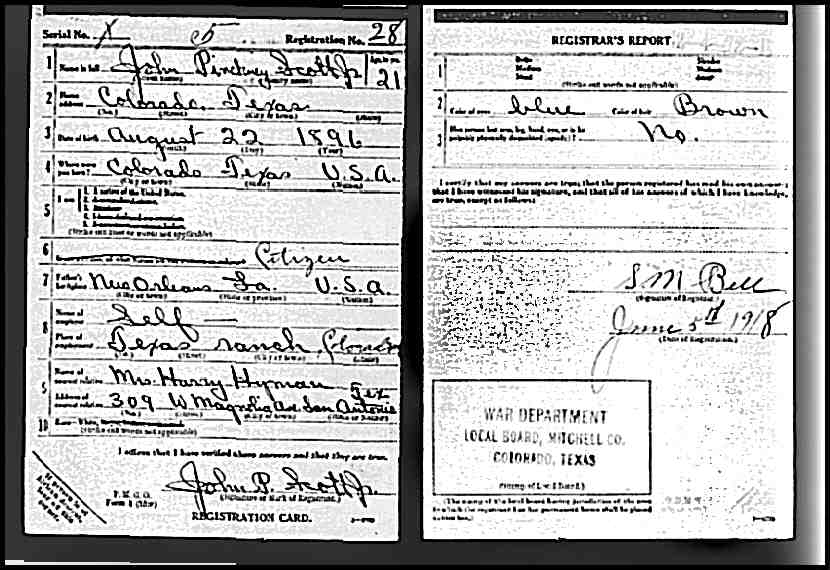 Serial No. X 65 Registration No. 28
1 Name in full John Pinckney Scott Jr Age in yrs. 21
2 Home address Colorado, Texas
(No.) (Street) (City or town) (State)
3 Date of birth August 22 1896
(Month) (Day) (Year)
4 Where were you born? Colorado Texas U.S.A.
(City or town) (State) (Nation)
5 I am
(Strike out lines or words not applicable)
6 Citizen
7 Father's birthplace New Orleans La. U.S.A.
(City or town) (State or province) (Nation)
8 Name of employer Self
Place of employment Texas ranch, Colorado
(No.) (Street) (City or town) (State)
9 Name of nearest relative Mrs Harry Hyman Tex
Address of nearest relative 309 W Magnolia Av. San Antonio
(No.) (Street) (City or town) (State or Nation)
10 Race—White,
(Strike out words not applicable)
I affirm that I have verified above answers and that they are true.
John P. Scott Jr.
(Signature or mark of Registrant.)
P. M. G. O.
Form 1
REGISTRATION CARD.
REGISTRAR'S REPORT
1
(Strike out words not applicable)
2 Color of eyes blue Color of hair Brown
3 Has person lost arm, leg, hand, eye, or is he palpably physically disqualified (specify)? No.
I certify that my answers are true; that the person registered has read his own answers;
that I have witnessed his signature, and that all of his answers of which I have knowledge,
are true, except as follows:
S M Bell
(Signature of Registrar.)
June 5th 1918
(Date of Registration.)
WAR DEPARTMENT
LOCAL BOARD, MITCHELL CO.
COLORADO, TEXAS
(Stamp of Local Board.)
(The stamp of the local board having jurisdiction of the area
in which the registrant has his permanent home shall be placed